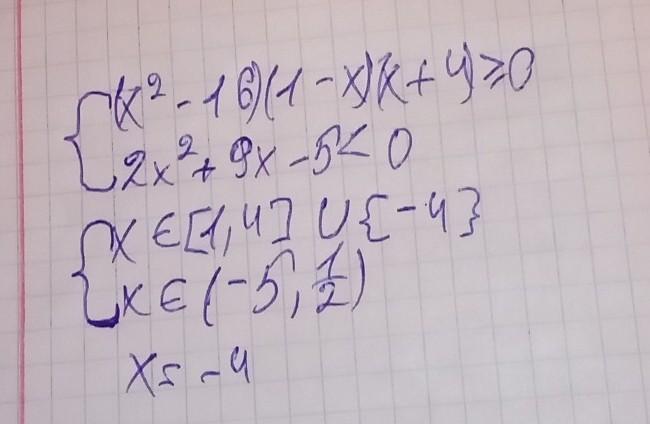 {(x² - 16)(1 - x)(x + 4) ≥ 0
2x² + 9x - 5 < 0
{x ∈ [1, 4] ∪ {-4}
x ∈ (-5, 1/2)
x = -4